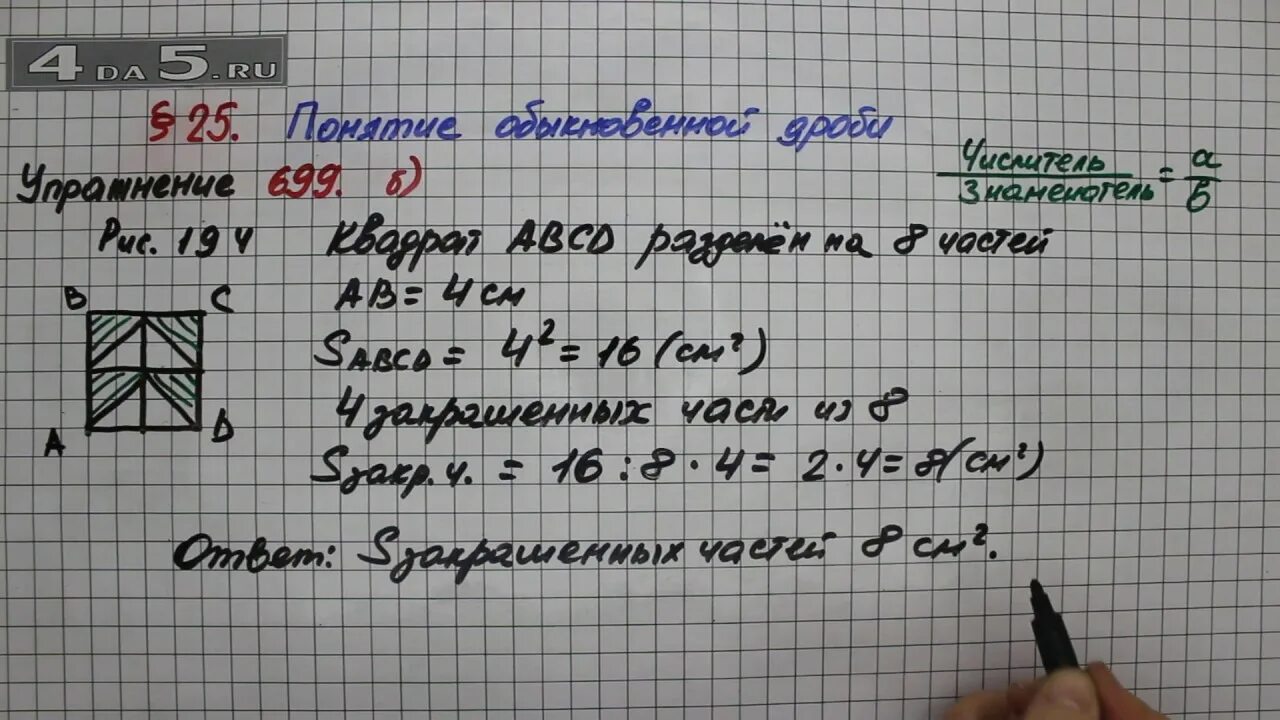 4DA5.RU
§ 25. Понятие обыкновенной дроби
Числитель
Знаменатель = a/b
Упражнение 699. б)
Рис. 194 Квадрат ABCD разделён на 8 частей
B C
AB = 4 см
S ABCD = 4² = 16 (см²)
4 закрашенных части из 8
A D
S закр. ч. = 16 : 8 · 4 = 2 · 4 = 8 (см²)
Ответ: S закрашенных частей 8 см².